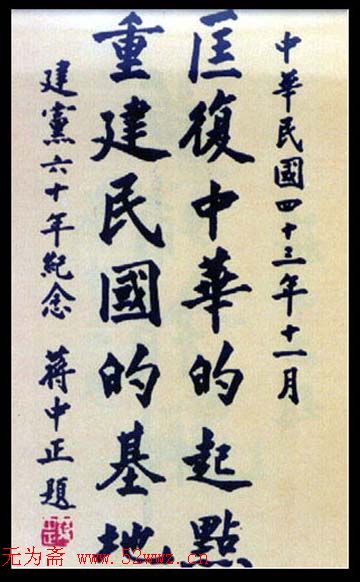 中華民國四十三年十一月
匡復中華的起點
重建民國的基地
建黨六十年紀念 蔣中正題
无为斋 www.52wwz.cn